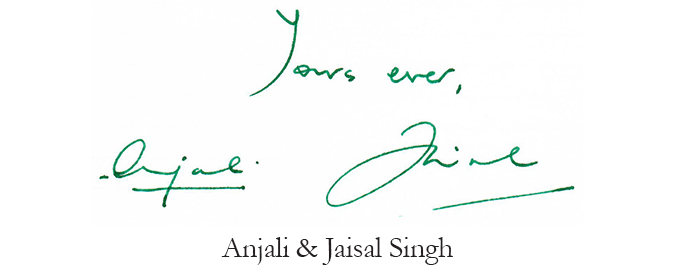 Yours ever,
Anjali Jaisal
Anjali & Jaisal Singh